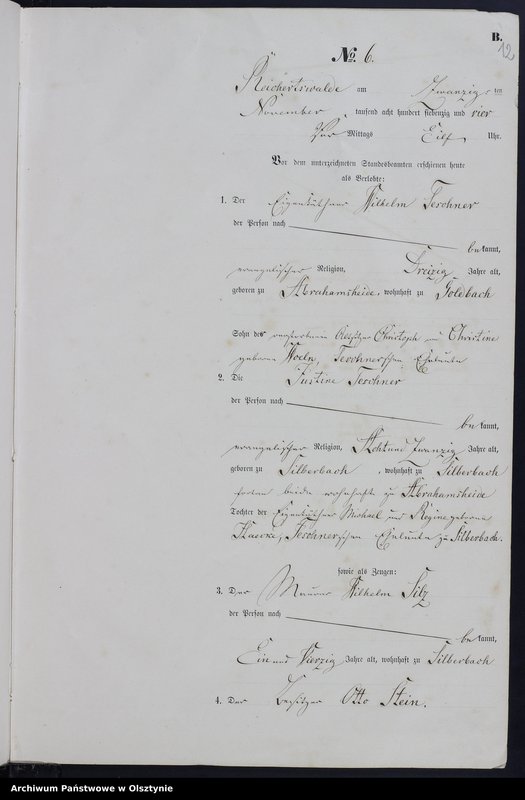 B.
12
No. 6.
Reichertswalde am Zwanzig ten
November tausend acht hundert siebenzig und vier
Vor Mittags Eilf Uhr.
Vor dem unterzeichneten Standesbeamten erschienen heute
als Verlobte:
1. Der Eigenkäthner Wilhelm Teschner
der Person nach
bekannt,
evangelischer Religion, Dreizig Jahre alt,
geboren zu Abrahamsheide, wohnhaft zu Goldbach
Sohn des verstorbenen Besitzer Christoph und Christine
geborene Woeln, Teschnerschen Eheleute
2. Die Justine Teschner
der Person nach
bekannt,
evangelischer Religion, Achtund Zwanzig Jahre alt,
geboren zu Silberbach, wohnhaft zu Silberbach
beide wohnhaft zu Abrahamsheide
Tochter der Eigenkäthner Michael und Regine geborene
Teschnerschen Eheleute zu Silberbach.
sowie als Zeugen:
3. Der Maurer Wilhelm Silz
der Person nach
bekannt,
Ein und Vierzig Jahre alt, wohnhaft zu Silberbach
4. Der Besitzer Otto Stein.
Archiwum Państwowe w Olsztynie